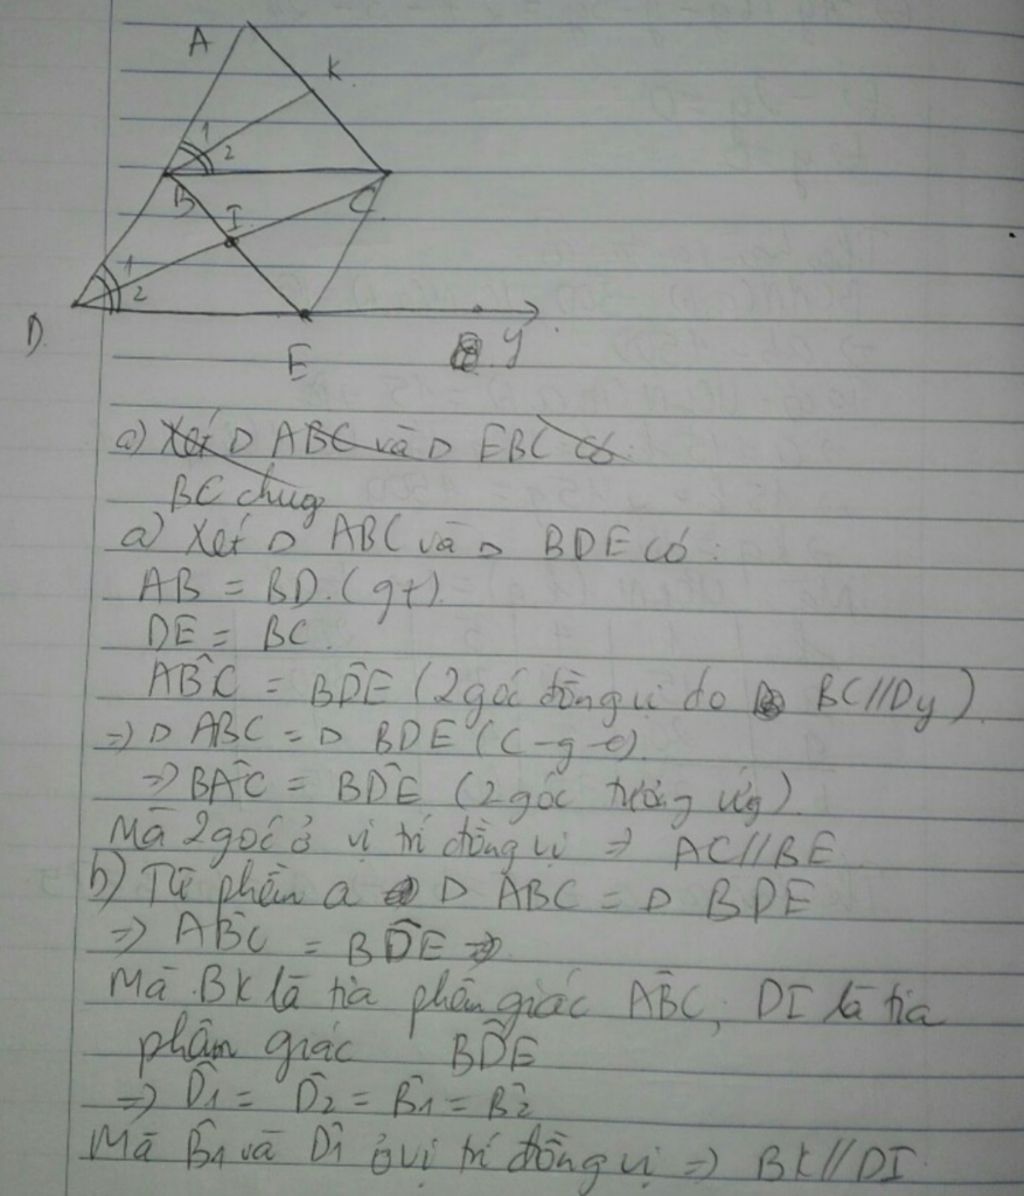 A
K
1
2
B
I
C
1
2
D
E
y
a) Xét Δ ABC và Δ EBC có
BC chug
a) Xét Δ ABC và Δ BDE có:
AB = BD. (gt)
DE = BC.
AB̂C = BD̂E (2 góc đồng vị do BC//Dy)
=> Δ ABC = Δ BDE (c-g-c)
=> BÂC = BD̂E (2 góc tương ứg)
Mà 2 góc ở vị trí đồng vị => AC//BE
b) Từ phần a Δ ABC = Δ BDE
=> AB̂C = BD̂E
Mà BK là tia phân giác AB̂C, DI là tia
phân giác BD̂E
=> D̂1 = D̂2 = B̂1 = B̂2
Mà B̂1 và D̂1 ở vị trí đồng vị => BK//DI